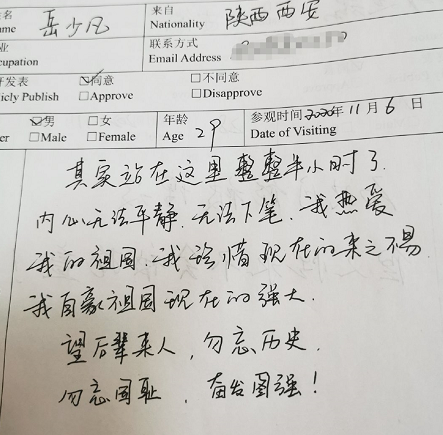 姓名 岳少凡 来自 陕西西安
Name Nationality
业 联系方式
Occupation Email Address
开发表 ☑同意 □不同意
Publicly Publish □Approve □Disapprove
☑男 □女 年龄 29 参观时间 2020年11月6日
□Male □Female Age Date of Visiting
其实站在这里整整半小时了.
内心无法平静.无法下笔.我热爱
我的祖国.我珍惜现在的来之不易
我自豪祖国现在的强大.
望后辈来人,勿忘历史.
勿忘国耻,奋发图强!